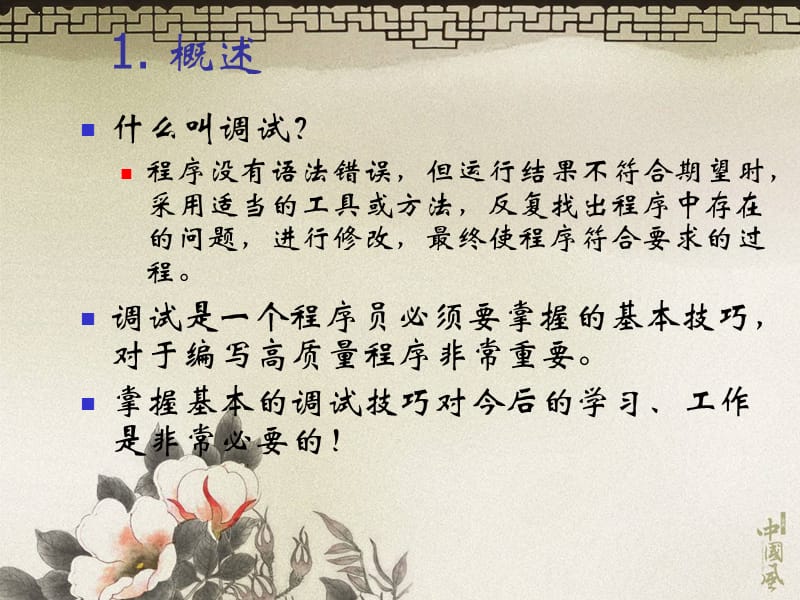 1. 概述
什么叫调试?
程序没有语法错误，但运行结果不符合期望时，
采用适当的工具或方法，反复找出程序中存在
的问题，进行修改，最终使程序符合要求的过
程。
调试是一个程序员必须要掌握的基本技巧，
对于编写高质量程序非常重要。
掌握基本的调试技巧对今后的学习、工作
是非常必要的!
中國風